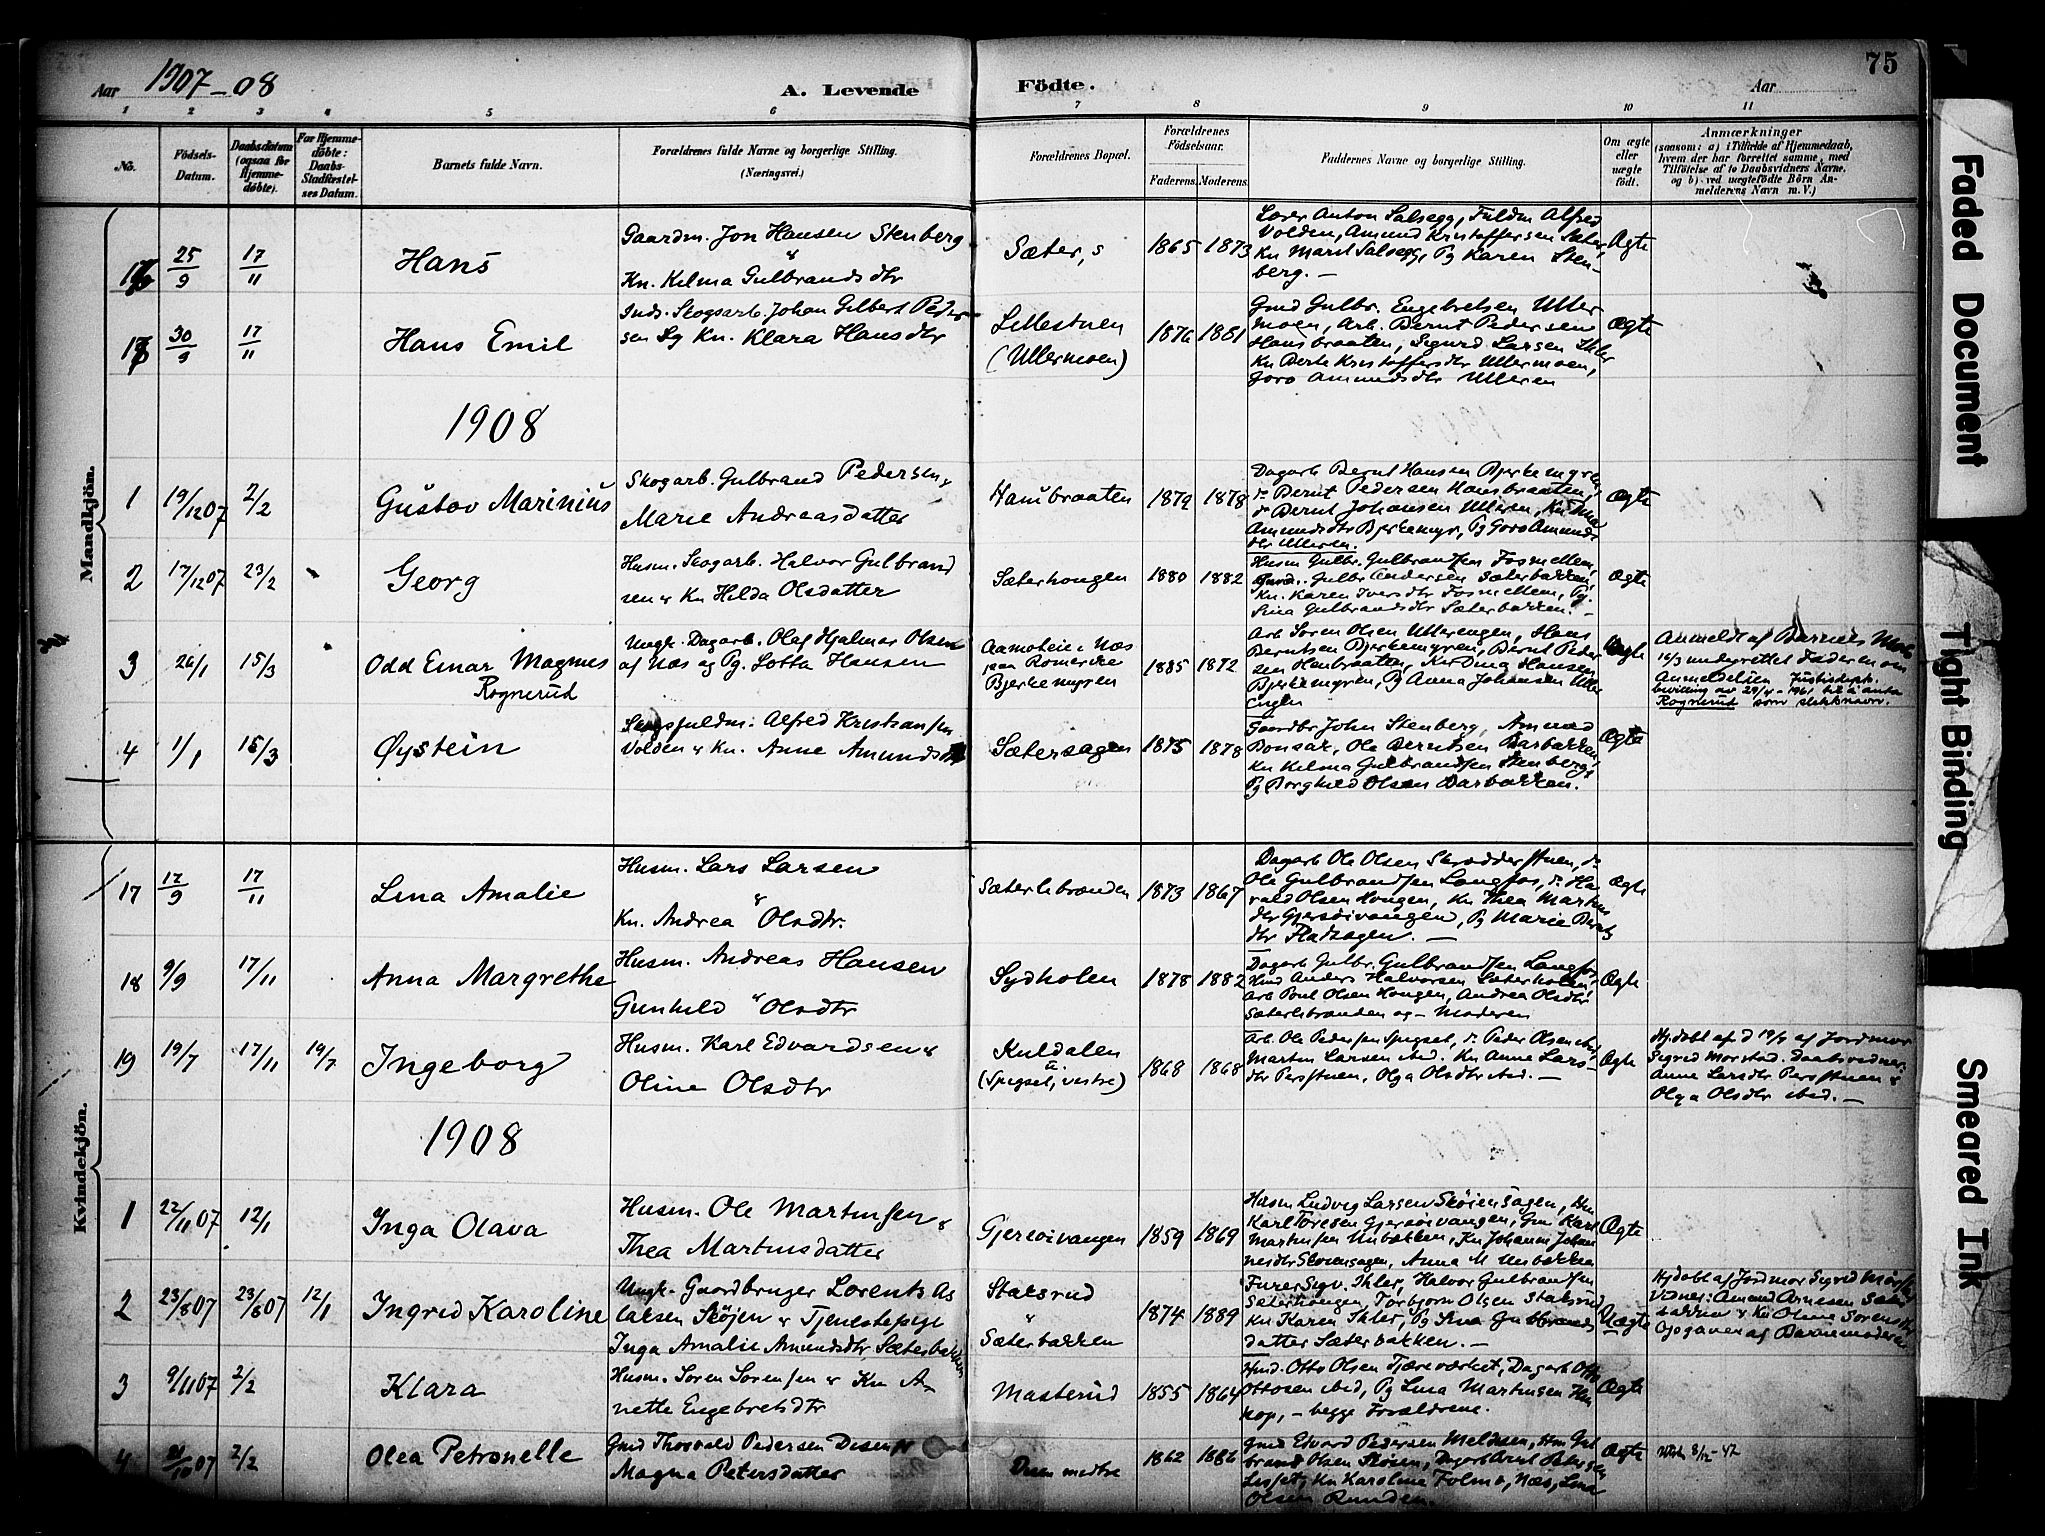 75
Aar 1907-08
A. Levende Födte.
Aar
1 2 3 4 5 6 7 8 9 10 11
No.
Födsels-Datum.
Daabsdatum (ogsaa for Hjemme-døbte).
For Hjemme-døbte: Daabs-Stadfæstel-ses Datum.
Barnets fulde Navn.
Forældrenes fulde Navne og borgerlige Stilling. (Næringsvei.)
Forældrenes Bopæl.
Forældrenes Födselsaar.
Faderens. Moderens.
Faddernes Navne og borgerlige Stilling.
Om ægte eller uægte födt.
Anmærkninger
(saasom: a) i Tilfælde af Hjemmedaab, hvem der har forrettet samme, med Tilföielse af to Daabsvidners Navne, og b) ved uægtefödte Börn An-melderens Navn m. V.)
Mandkjön.
25/9 17/11 Hans
Gaardm. Jon Hansen Stenberg
&
Kn. Kilma Gulbrandsdtr
Sæter, s 1865 1873
Lærer Anton Salsegg, Fuldm Alfred
Volden, Amund Kristoffersen Sæter,
Kn Marit Salsegg, Pg Karen Sten-
berg. —
Ægte
30/9 17/11 Hans Emil
Inds. Skogsarb. Johan Gilbert Peder
sen og Kn. Klara Hansdtr
Lillestuen
(Ullermoen)
1876 1881
Gmd Gulbr. Engebretsen Uller
moen, Arb. Bernt Pedersen
Hansbraaten, Sigurd Larsen Ihler
Kn Berte Kristoffersdtr Ullermoen,
Goro Amundsdtr Ulleren
Ægte
1908
1 19/12 07 2/2 Gustav Marinius
Skogarb. Gulbrand Pedersen &
Marie Andreasdatter
Hansbraaten 1879 1878
Dagarb Bernt Hansen Bjerkemyren,
do Bernt Pedersen Hansbraaten,
do Bernt Johansen Ulleren, Kn
Amundsdtr Bjerkemyr, Pg Goro Amunds
dtr Ulleren.
Ægte
2 17/12 07 23/2 Georg
Husm. Skogarb. Halvor Gulbrand
sen & Kn Hilda Olsdatter
Sæterhougen 1880 1882
Husm Gulbr. Gulbrandsen Fosmellem,
Gmd. Gulbr Andersen Sæterbakken,
Kn. Karen Iversdtr Fosmellem, Pg.
Lina Gulbrandsdtr Sæterbakken. —
Ægte
3 26/1 15/3 Odd Einar Magnus
Rognerud
Ungk. Dagarb. Olaf Hjalmar Olsen
af Næs og Pg. Lotta Hansen
Aamoteie i Næs
paa Romerike
Bjerkemyren
1885 1872
Arb Soren Olsen Ullerengen, Hans
Berntsen Bjerkemyren, Bernt Peder
sen Hanbraaten, Kn Dina Hansen
Bjerkemyren, Pg Anna Johansen Uller
engen
Uægte
Anmeldt af Barnets Mor
16/3 underrettet Faderen om
Anmeldelsen Justisdept.
bevilling av 29/4-1961 til å anta
Rognerud som slektsnavn.
4 1/1 15/3 Øystein
Skogsfuldm. Alfred Kristiansen
Volden & Kn. Anne Amundsdtr
Sætersagen 1875 1878
Gaardbr John Stenberg, Amund
Bonsak, Ole Berntsen Barbakken,
Kn Kilma Gulbrandsen Stenberg,
Pg Borghild Olsen Barbakken.
Ægte
Kvindekjön.
17 17/9 17/11 Lina Amalie
Husm. Lars Larsen
&
Kn. Andrea Olsdtr.
Sæterlibranden 1873 1867
Dagarb Ole Olsen Skrædderstuen, do
Ole Gulbrandsen Langfos, do Ha
rald Olsen Hougen, Kn Thea Martins
dtr Gjersøivangen, Pg Marie Bernts
dtr Fladsagen. —
Ægte
18 9/9 17/11 Anna Margrethe
Husm. Andreas Hansen
&
Gunhild Olsdtr
Sydholen 1878 1882
Dagarb Gulbr. Gulbrandsen Langfos,
Hmd Anders Halvorsen Sæterholen,
Arb Poul Olsen Hougen, Andrea Olsdtr
Sæterlibranden og — Moderen
Ægte
19 19/7 17/11 19/7 Ingeborg
Husm. Karl Edvardsen &
Oline Olsdtr
Kuldalen
(Spigset, vestre)
1868 1868
Arb. Ole Pedersen Spigset, do Peder Olsen ibid,
Martin Larsen ibid. Kn Anne Lars-
dtr Persstuen, Olga Olsdtr ibid. —
Ægte
Hjdøbt af d 19/7 af Jordmor
Sigrid Morstad. Daabsvidner:
Anne Larsdtr Persstuen &
Olga Olsdtr ibid. —
1908
1 22/11 07 12/1 Inga Olava
Husm. Ole Martinsen &
Thea Martinsdatter
Gjersøivangen 1859 1869
Husm Ludvig Larsen Skøiensagen, Hm
Karl Toresen Gjersøivangen, Gm Karl
Martinsen Unbakken, Kn Johanne Johan
nesdtr Skøiensagen, Anna M Unbakken
Ægte
2 23/8 07 23/8 07 12/1 Ingrid Karoline
Ungk. Gaardbruger Lorents As
laksen Skøjen & Tjenestepige
Inga Amalie Amundsdtr Sæterbakken
Staksrud
"
Sæterbakken
1874 1889
Furer Sigv. Ihler, Halvor Gulbrandsen
Sæterhougen, Torbjørn Olsen Staksrud
Kn Karen Ihler, Pg Lina Gulbrands
datter Sæterbakken. —
Uægte
Hjdøbt af Jordmor Sigrid Morst.
Vidner: Amund Arnesen Sæter
bakken & Kn Oline Sorensdtr
Opgaven af Barnemoderen
3 9/11 07 2/2 Klara
Husm. Soren Sorensen & Kn A-
nette Engebretsdtr
Masterud 1855 1864
Hmd. Otto Olsen Tjæreværket, Dagarb Otto
Ottosen ibid, Pg Lina Martinsen Han
kop, — begge Forældrene.
Ægte
4 07 2/2 Olea Petronelle
Gmd Thorvald Pedersen Disen &
Magna Petersdatter
Disen nedtre 1862 1886
Gmd Edvard Pedersen Meldisen, Hm Gul
brand Olsen Skoien, Dagarb
Kn Karoline Folmo, Næs, Lina
Olsen Runden.
Ægte
8/12-47
Faded Document
Tight Binding
Smeared Ink